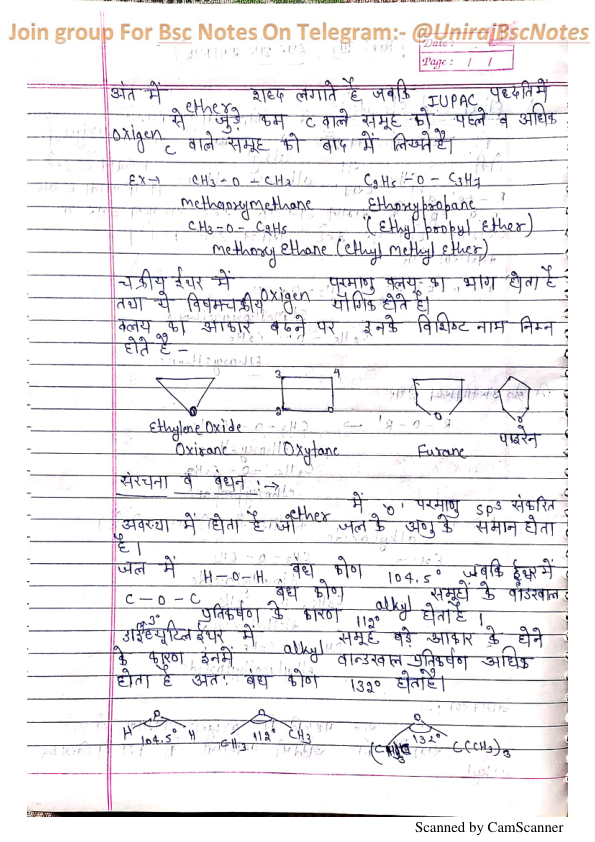 Join group For Bsc Notes On Telegram:- @UnirajBscNotes
Date :
Page : / /
अंत में ether शब्द लगाते है जबकि IUPAC पद्धति में
oxigen से जुड़े कम C वाले समूह को पहले व अधिक
C वाले समूह को बाद में लिखते है।
Ex → CH3 - O - CH3 C2H5 - O - C3H7
methaoxymethane Ethoxypropane
CH3 - O - C2H5 (Ethyl propyl Ether)
methoxy Ethane (ethyl methyl ether)
चक्रीय ईथर में oxigen परमाणु वलय का भाग होता है
तथा ये विषमचक्रीय यौगिक होते है।
वलय का आकार बढ़ने पर इनके विशिष्ट नाम निम्न
होते है -
3 4
2 1
O O O O
Ethylene Oxide
Oxirane Oxytane Furane पाइरेन
संरचना व बंधन :→
ether में 'O' परमाणु sp3 संकरित
अवस्था में होता है जो जल के अणु के समान होता
है।
जल में H-O-H बंध कोण 104.5° जबकि ईथर में
C-O-C बंध कोण alkyl समूहों के वांडरवाल
प्रतिकर्षण के कारण 112° होता है।
डाईब्यूटिल ईथर में alkyl समूह बड़े आकार के होने
के कारण इनमें वान्डरवाल प्रतिकर्षण अधिक
होता है अतः बंध कोण 132° होता है।
O O O
H 104.5° H CH3 112° CH3 (CH3)3C 132° C(CH3)3
Scanned by CamScanner